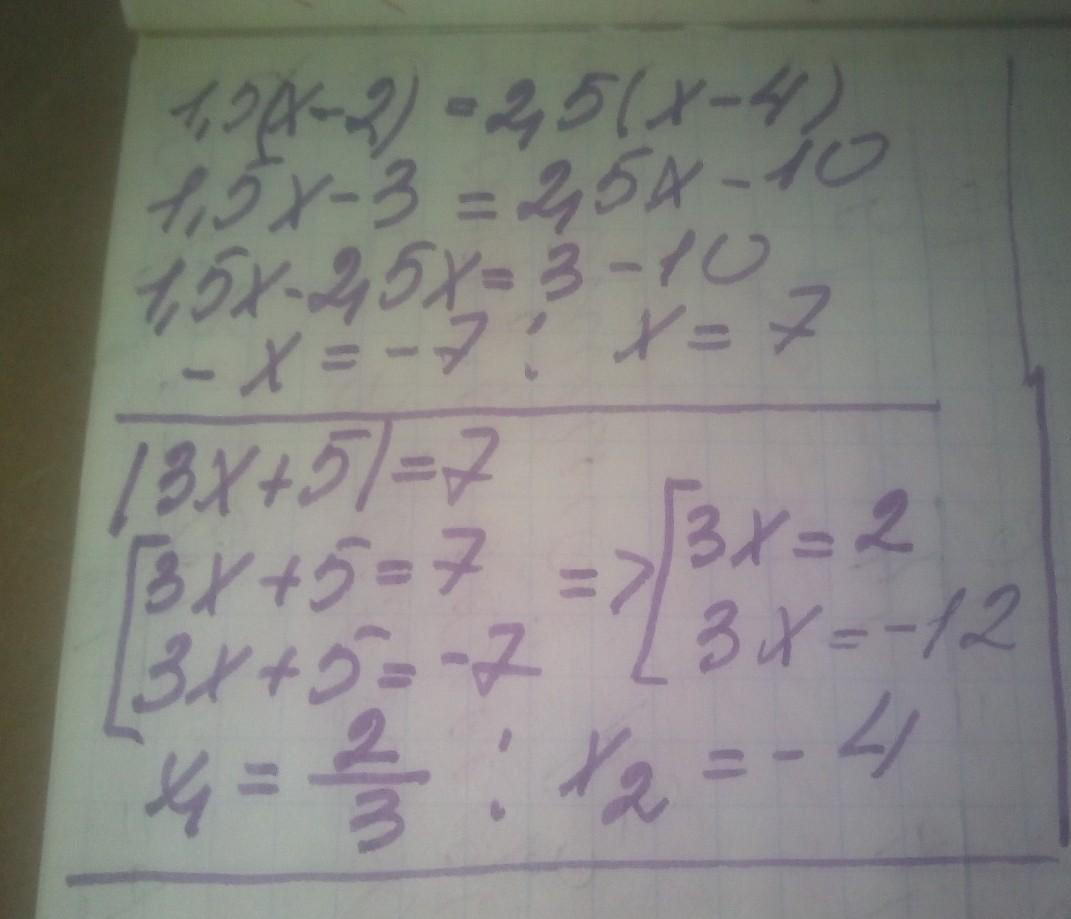 1,5(x-2) = 2,5(x-4)
1,5x-3 = 2,5x-10
1,5x-2,5x = 3-10
-x = -7; x = 7
|3x+5| = 7
[3x+5 = 7 => [3x = 2
3x+5 = -7 3x = -12
x₁ = 2/3; x₂ = -4